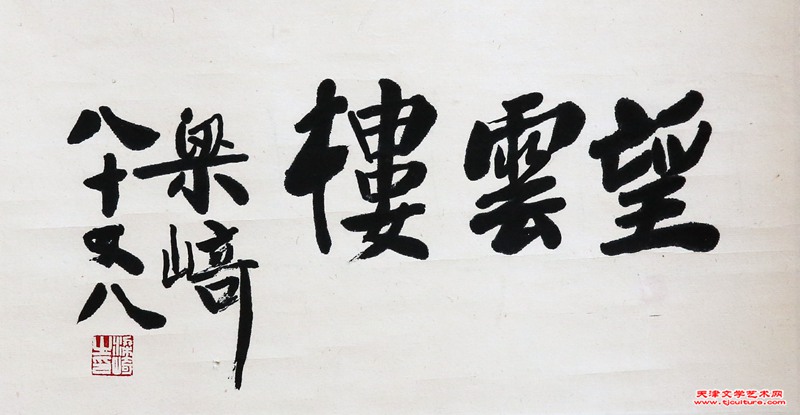 望雲樓
梁崎
八十又八
天津文学艺术网
www.tjculture.com